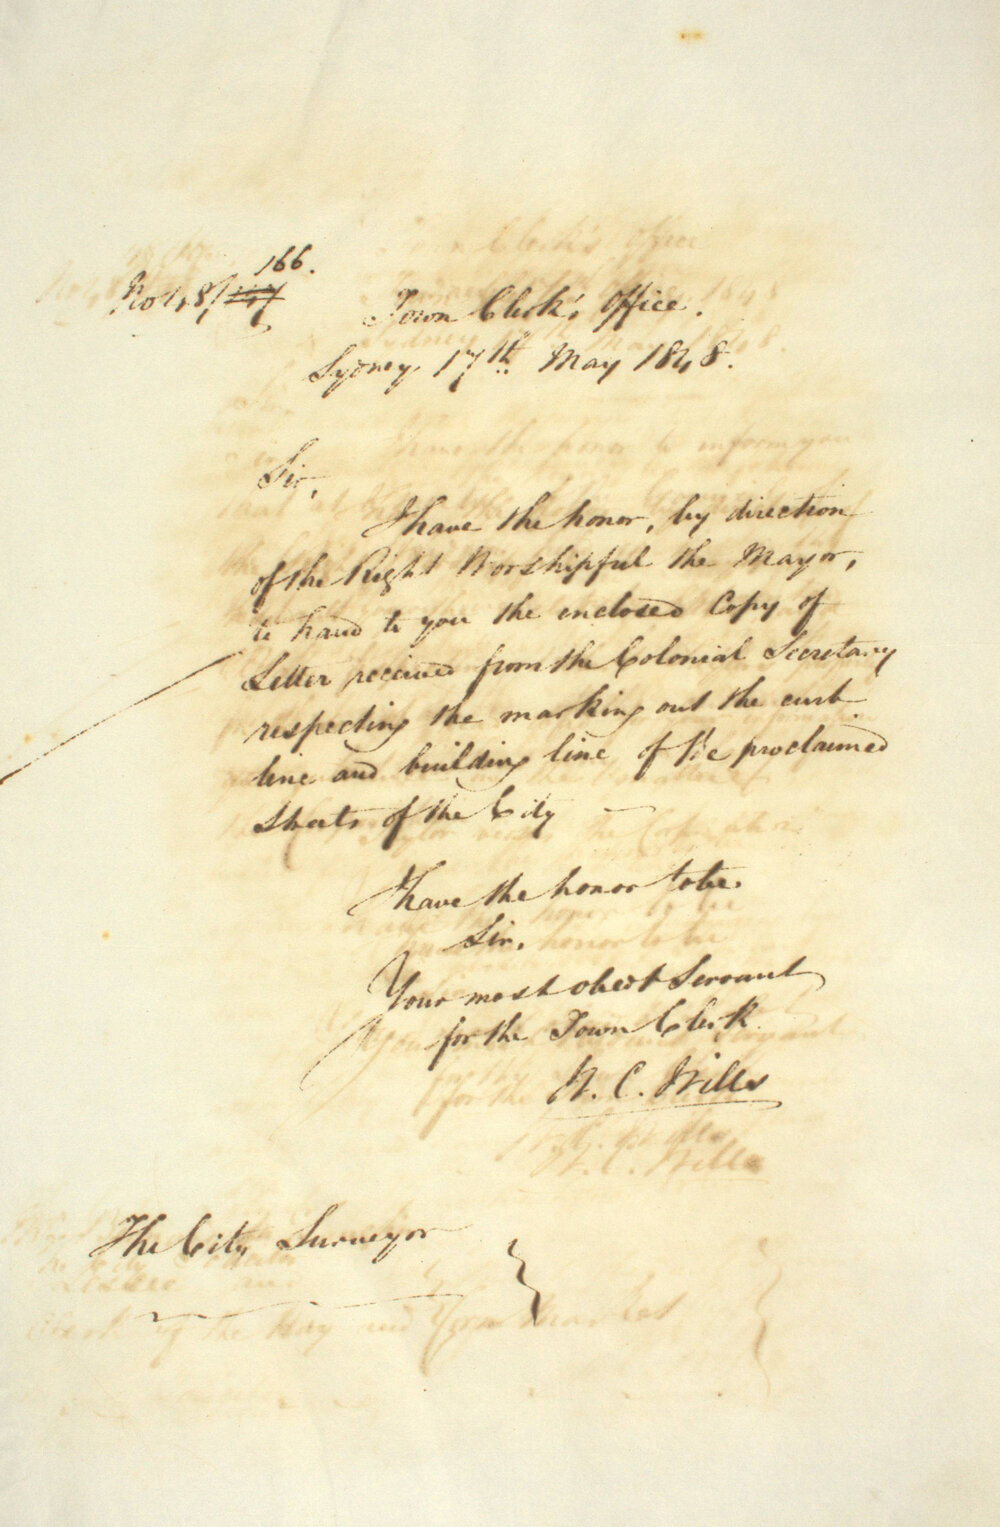 166.
No 48/147
Town Clerk's Office.
Sydney, 17th May 1848.
Sir,
I have the honor, by direction
of the Right Worshipful the Mayor,
to hand to you the enclosed Copy of
Letter received from the Colonial Secretary
respecting the marking out the curb
line and building line of the proclaimed
Streets of the City
I have the honor to be
Sir,
Your most obedt Servant
for the Town Clerk
W. C. Wills
The City Surveyor